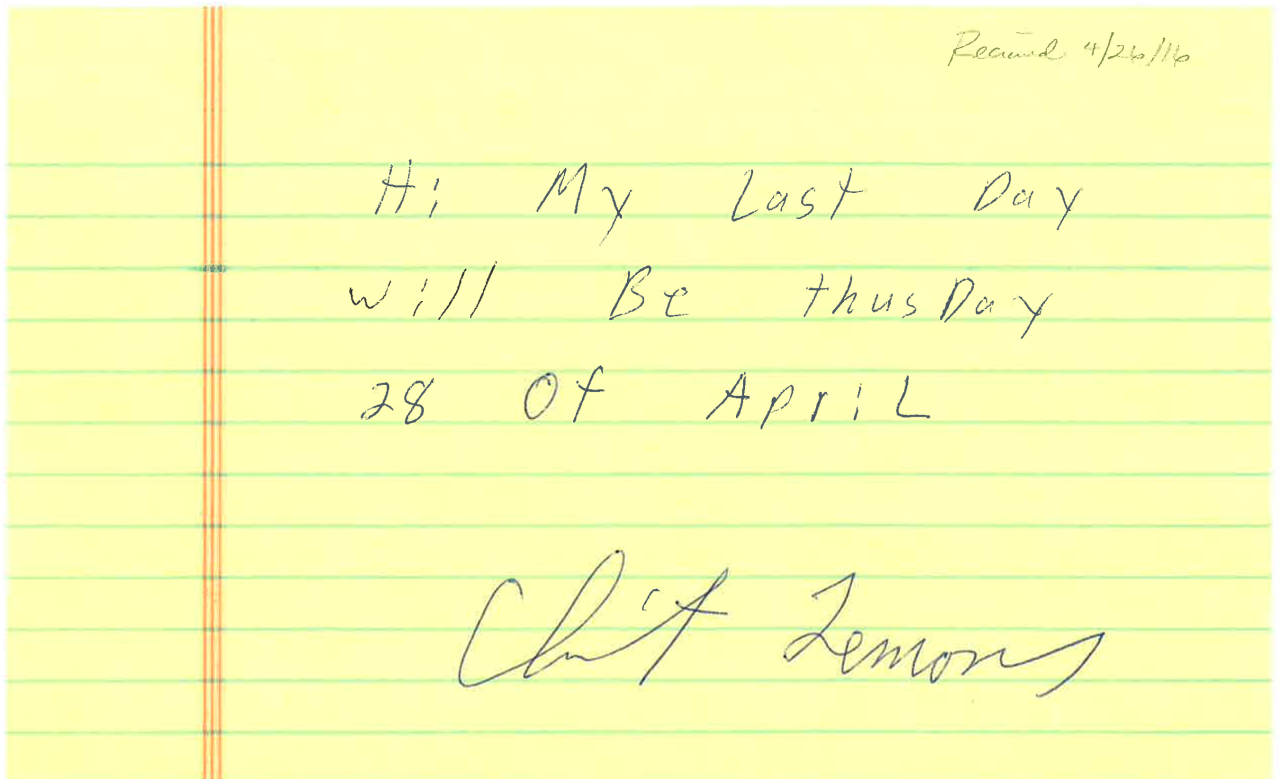 Received 4/26/16
Hi My Last Day
will Be thusDay
28 Of ApriL
Clint Lemons